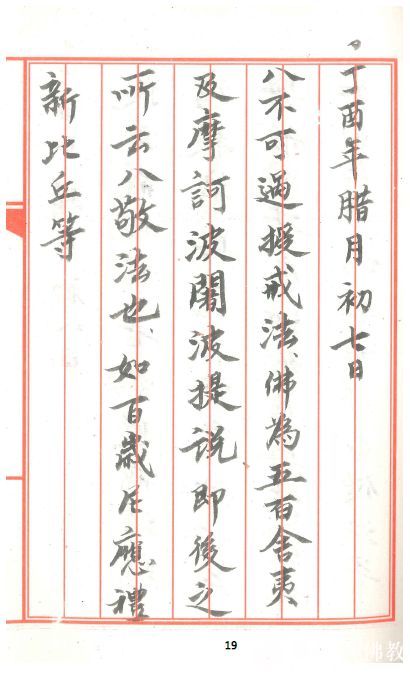 丁酉年腊月初七日
八不可過授戒法、佛為五百舍夷
及摩訶波闍波提説即後之
所云八敬法也、如百歲尼應禮
新比丘等
19
佛教